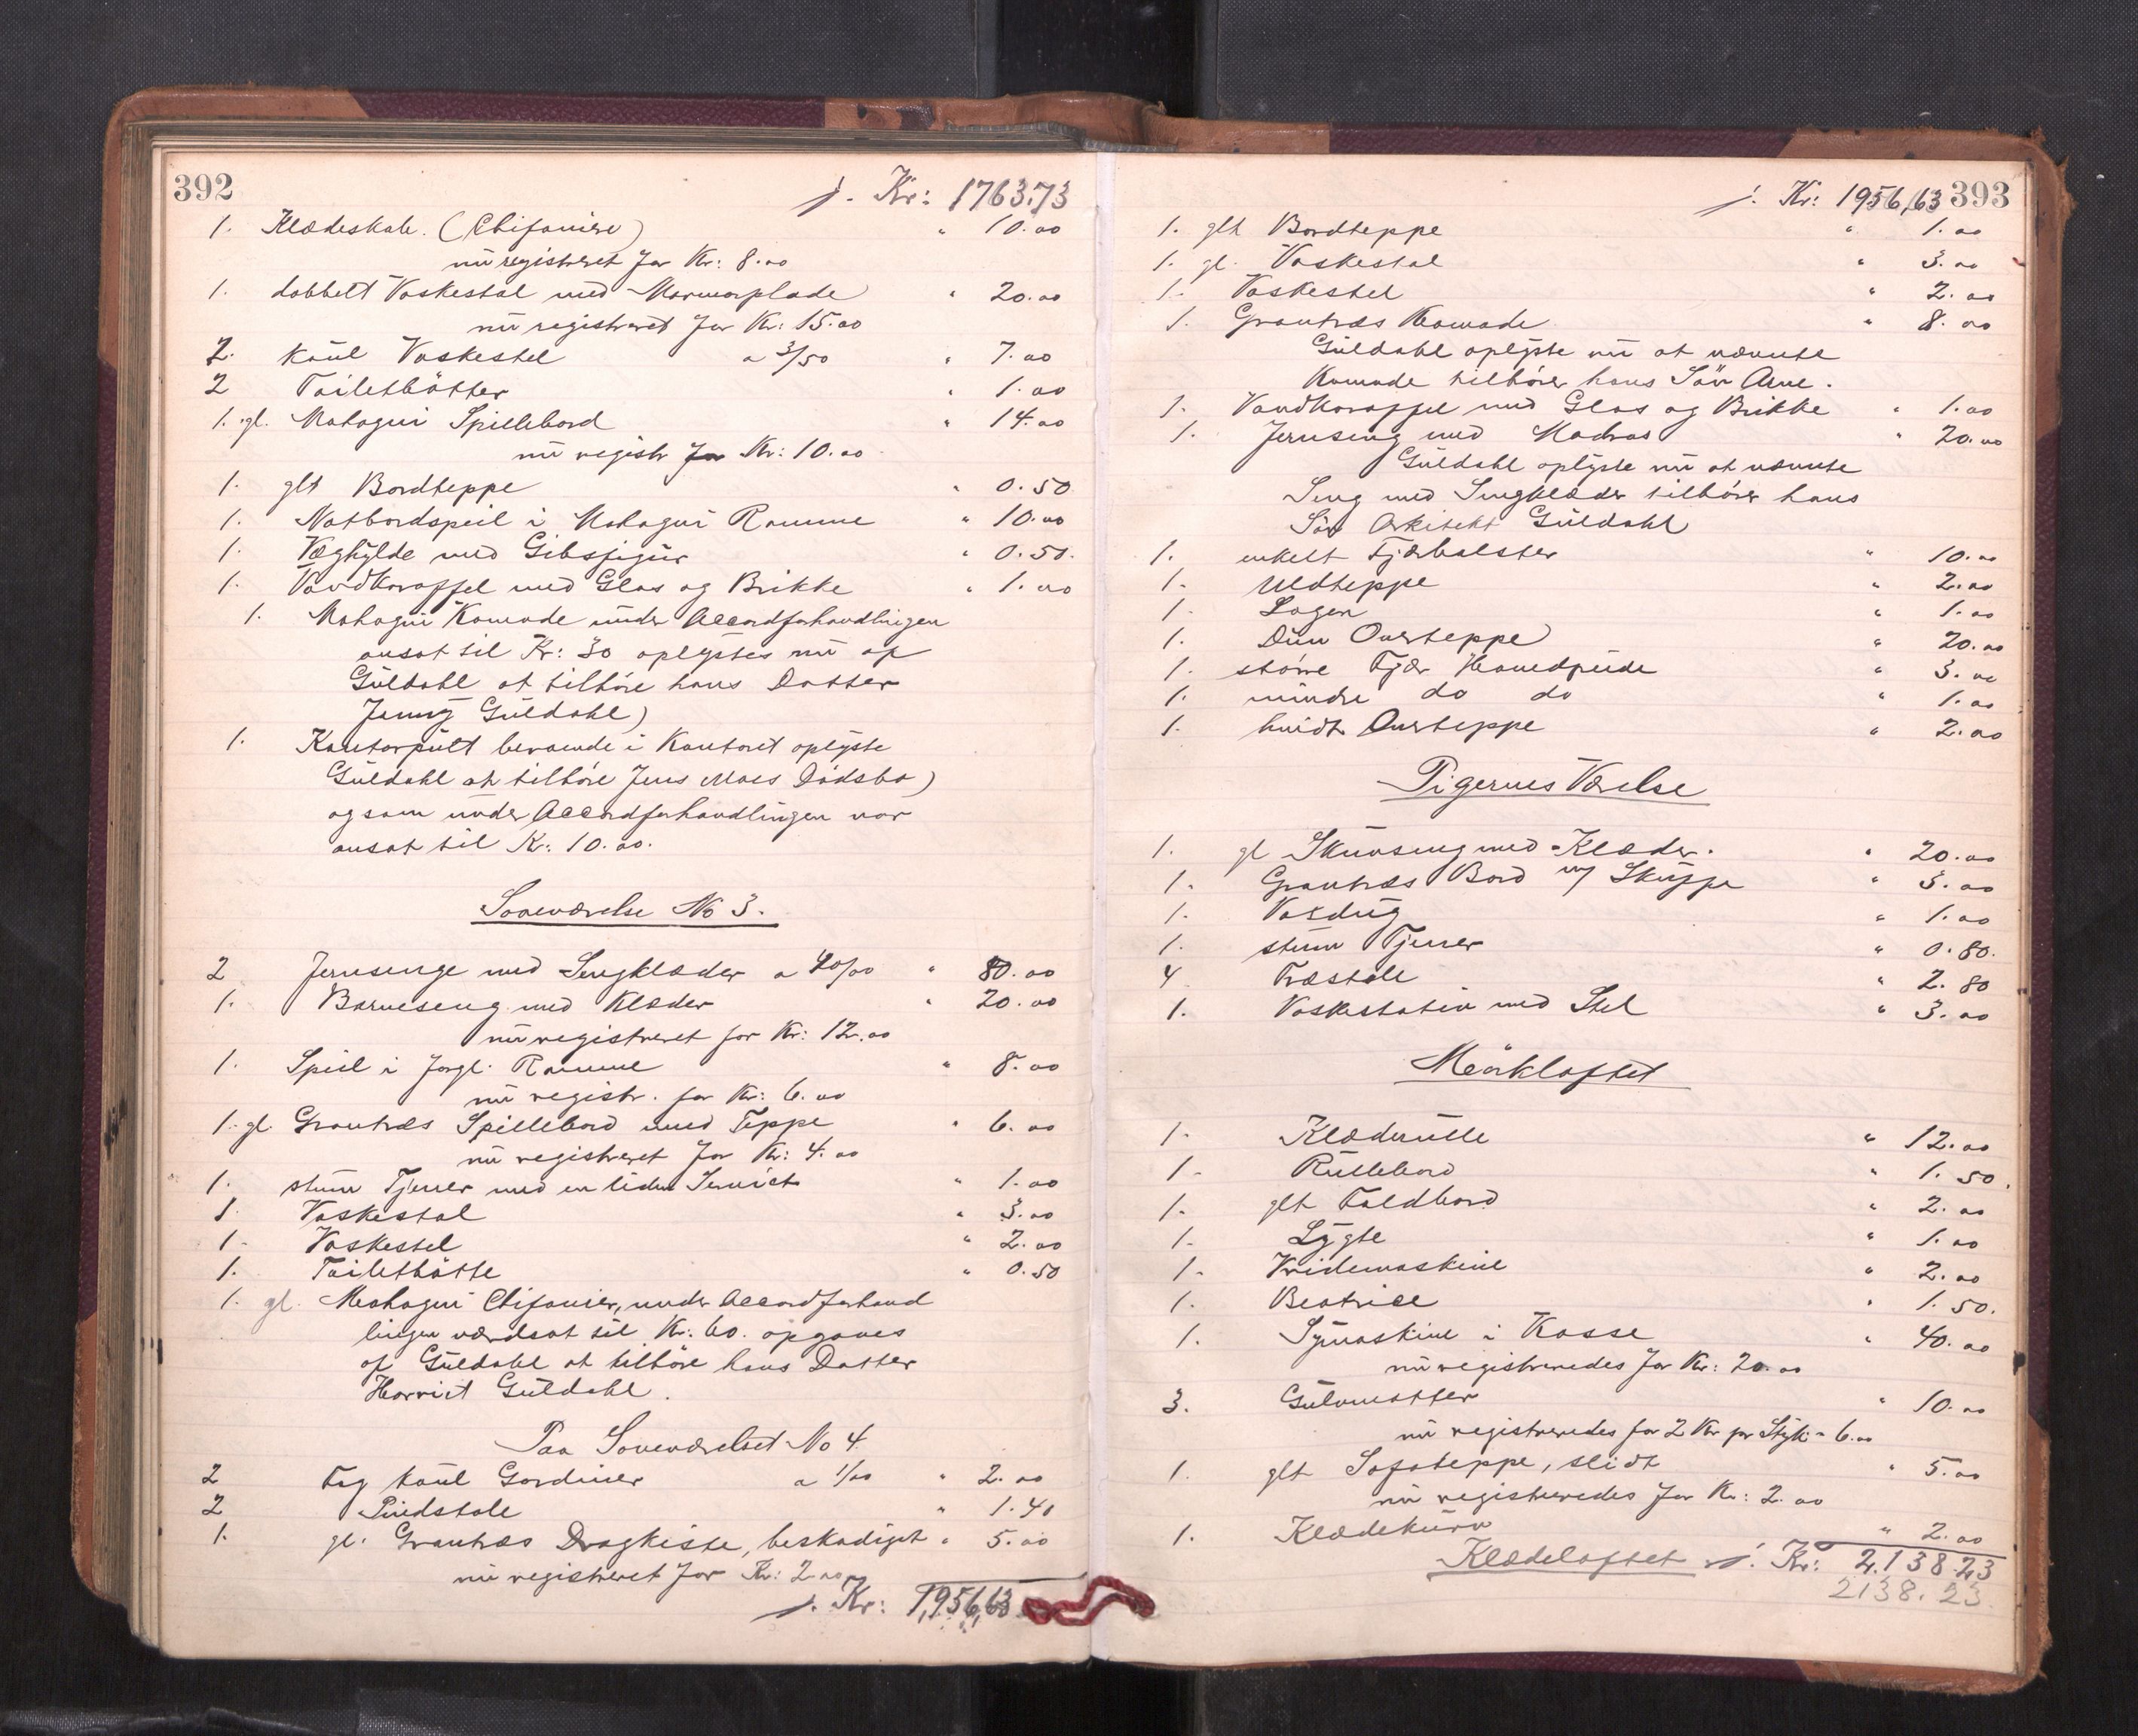 392
f. Kr: 1763.73
1. Klædeskab. (Chifoniere) " 10.00
nu registreret for Kr: 8.00
1. dobbelt Vaskestol med Marmorplade " 20.00
nu registreret for Kr: 15.00
2. Vaskestel a 3/50 " 7.00
2 Toiletbötter " 1.00
1. gl. Mahogni Spillebord " 14.00
nu registr for Kr: 10.00
1. glt Bordteppe " 0.50
1. Natbordspeil i Mahogni Ramme " 10.00
1. Væghylde med Gibsfigur " 0.50.
1. Vandkaraffel med Glas og Brikke " 1.00
1. Mahogni Komode under Accordforhandlingen
ansat til Kr: 30 oplystes nu af
Güldahl at tilhöre hans Datter
Jenny Güldahl)
1. Kontorpult beroende i Kontoret oplyste
Güldahl at tilhöre Jens Moes Dödsbo)
og som under Accordforhandlingen var
ansat til Kr: 10.00.
Soveværelse No 3.
2 Jernsenge med Sengklæder a 40/00 " 80.00
1. Barneseng med Klæder " 20.00
nu registreret for Kr: 12.00
1. Speil i forgl. Ramme " 8.00
nu registr. for Kr: 6.00
1. gl. Grantræs Spillebord med Teppe " 6.00
nu registreret for Kr: 4.00
1. stum Tjener med en liden Serviet " 1.00
1 Vaskestol " 3.00
1. Vaskestel " 2.00
1. Toiletbötte " 0.50
1. gl. Mahogni Chifonier, under Accordforhand
lingen værdsat til Kr: 60. opgaves
af Güldahl at tilhöre hans Datter
Harriet Güldahl.
Paa Soveværelset No 4.
2 Fag Gardiner a 1/00 " 2.00
2 Pindstole " 1.40
1. gl. Grantræs Dragkiste, beskadiget " 5.00
nu registreret for Kr: 2.00
f. Kr: 1,956,63
393
f. Kr: 1956,63
1. glt Bordteppe " 1.00
1. gl. Vaskestol " 3.00
1. Vaskestel " 2.00
1. Grantræs Komode " 8.00
Güldahl oplyste nu at nævnte
Komode tilhörer hans Sön Arne.
1. Vandkaraffel med Glas og Brikke " 1.00
1. Jernseng med Madras " 20.00
Güldahl oplyste nu at nævnte
Seng med Sengklæder tilhörer hans
Sön Arkitekt Güldahl
1. enkelt Fjærbolster " 10.00
1. Uldteppe " 2.00
1. Lagen " 1.00
1. Dun Overteppe " 20.00
1. större Fjær Hovedpude " 3.00
1. mindre do do " 1.00
1. hvidt Overteppe " 2.00
Pigernes Værelse
1. gl Skuvseng med Klæder. " 20.00
1. Grantræs Bord m/ Skuffe " 3.00
1. Voxdug " 1.00
1. stum Tjener " 0.80.
4 Træstole " 2.80
1. Vaskestativ med Stel " 3.00
Mörkloftet
1. Klæderulle " 12.00
1. Rullebord " 1.50.
1. glt Foldbord " 2.00
1. Lygte " 1.00
1. Vridemaskine " 2.00
1. Beatrice " 1.50.
1. Symaskine i Kasse " 40.00
nu registreredes for Kr: 20.00
3. Gulvmatter " 10.00
nu registreredes for 2 Kr pr Styk = 6.00
1. glt Sofateppe, slidt " 5.00
nu registreredes for Kr: 2.00
1. Klædekurv " 2.00
Klædeloftet f. Kr: 2.138.23
2138.23